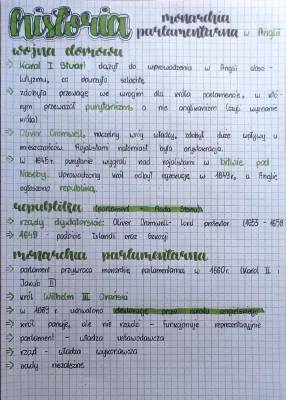 historia monarchia parlamentarna w Anglii
wojna domowa
⇒ Karol I Stuart dążył do wprowadzenia w Anglii abso-
lutyzmu, co oburzyło szlachtę
⇒ zdobyła przewagę we wrogim dla króla parlamencie, w któ-
rym przeważał purytanizm, a nie anglikanizm (czyli wyznanie
króla)
⇒ Oliver Cromwell, naczelny wróg władcy, zdobył duże wpływy u
mieszczaństwa. Rojalistami natomiast była
⇒ W 1645r. purytanie wygrali nad rojalistami w bitwie pod
Naseby. Uprowadzony król odbył egzekucję w 1649r., a Anglię
ogłoszono republiką.
republika (parlament – Rada Stanu)
⇒ rządy dyktatorskie: Oliver Cromwell - lord protektor (1653 - 1658
⇒ 1649 - podbicie Irlandii oraz Szkocji
monarchia parlamentarna
⇒ parlament przywraca monarchię parlamentarną w 1660r. (Karol II i
Jakub II)
⇒ król Wilhelm III Orański
⇒ w 1689 r uchwalono deklarację praw narodu angielskiego
⇒ król panuje, ale nie rządzi - funkcjonuje reprezentacyjnie
⇒ parlament - władza ustawodawcza
⇒ rząd - władza wykonawcza
⇒ sądy niezależne